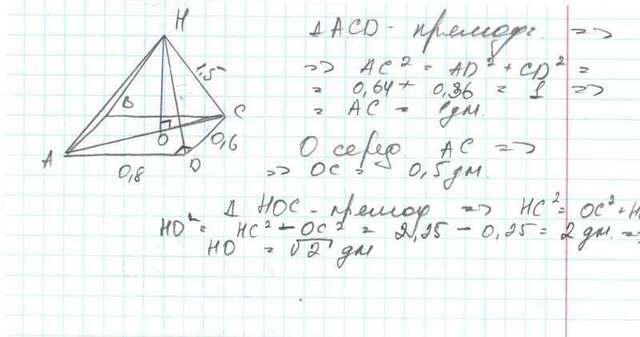 H
1,5
B
C
O
0,6
A
D
0,8
Δ ACD - прямоуг. =>
=> AC² = AD² + CD² =
= 0,64 + 0,36 = 1 =>
= AC = 1дм.
O серед AC =>
=> OC = 0,5 дм.
Δ HOC - прямоуг => HC² = OC² + H
HO² = HC² - OC² = 2,25 - 0,25 = 2 дм. =>
HO = √2 дм